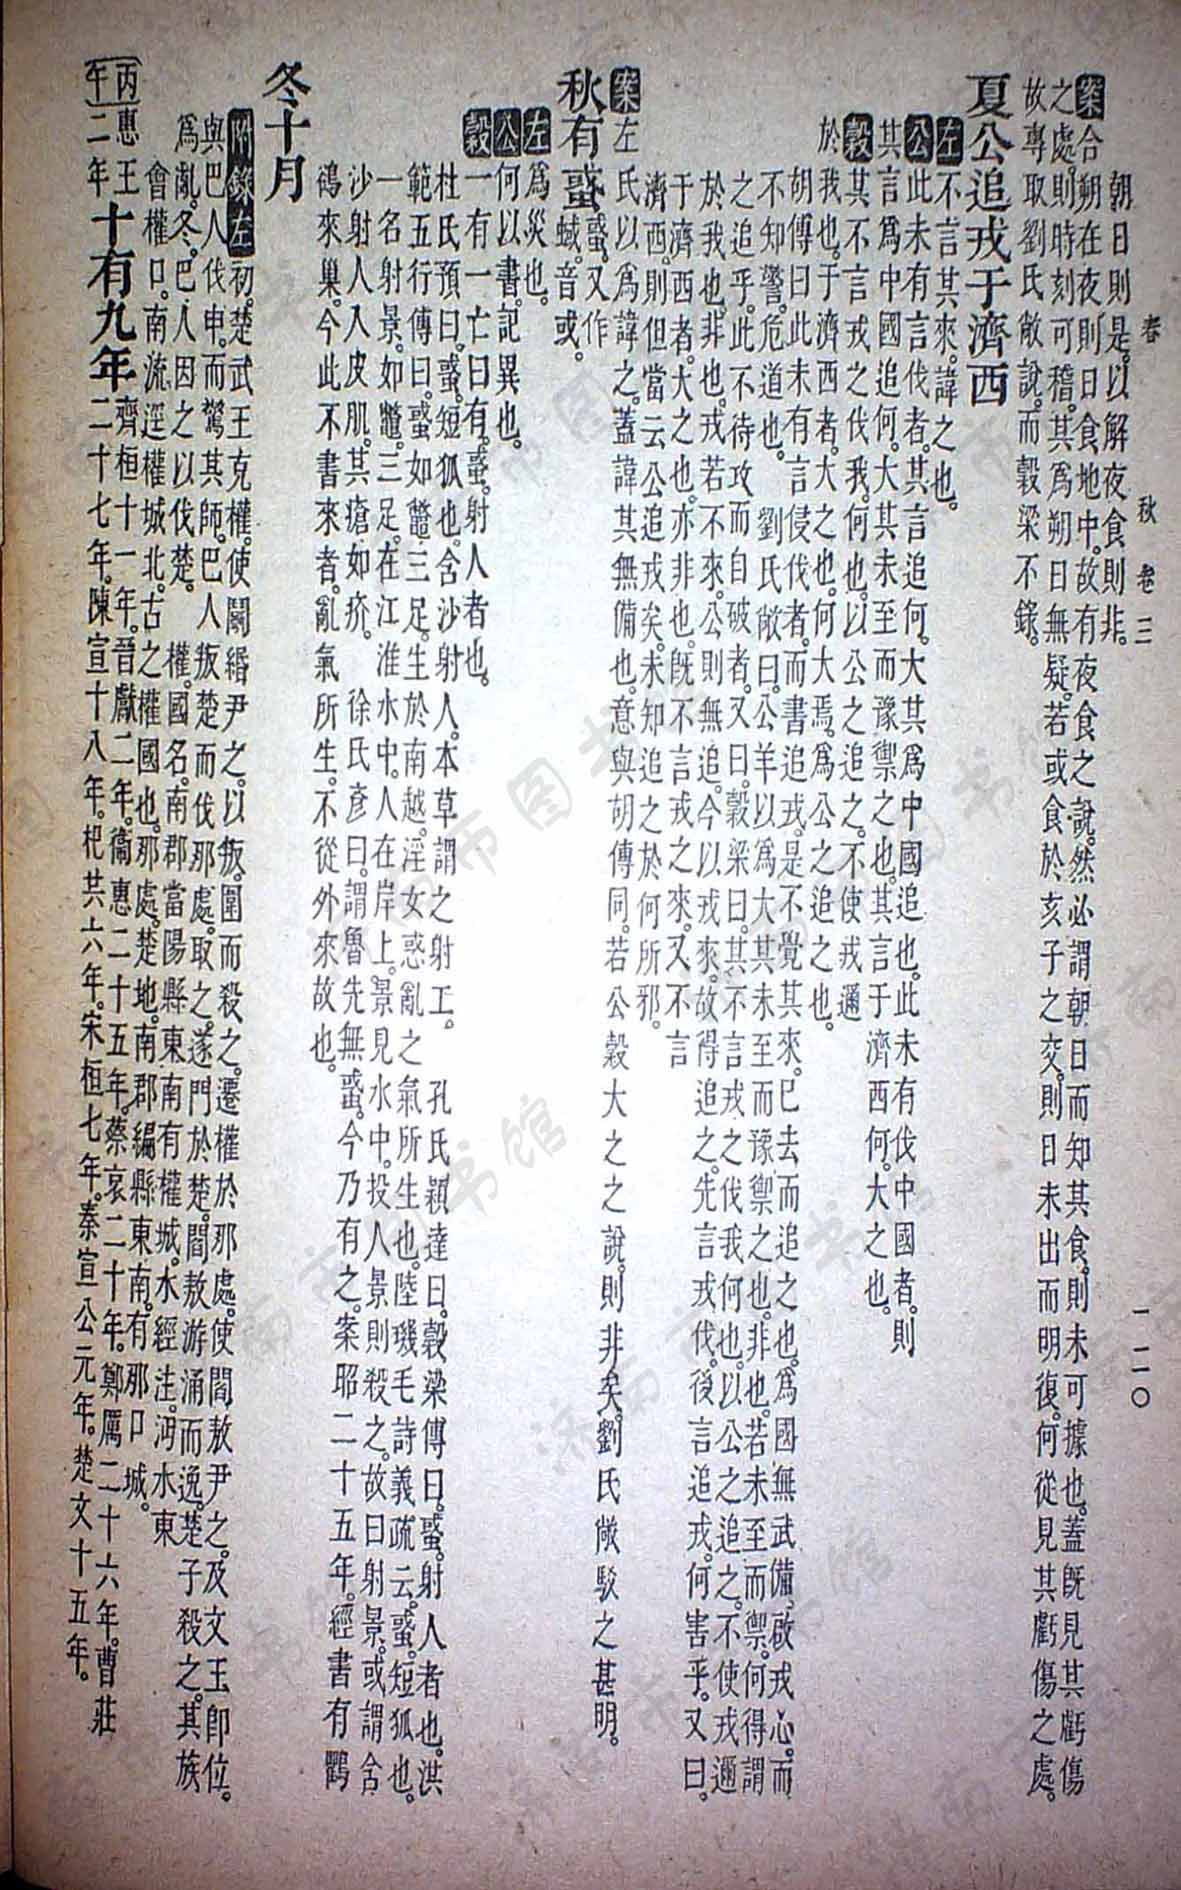 春秋 卷三 一二〇
朝日則是。以解夜食則非。
案合朔在夜。則日食地中。故有夜食之說。然必謂朝日而知其食。則未可據也。蓋旣見其虧傷
之處。則時刻可稽。其爲朔日無疑。若或食於亥子之交。則日未出而明復。何從見其虧傷之處。
故專取劉氏敞說。而穀梁不錄。
夏公追戎于濟西
左不言其來。諱之也。
公此未有言伐者。其言追何。大其爲中國追也。此未有伐中國者。則
其言爲中國追何。大其未至而豫禦之也。其言于濟西何。大之也。
穀其不言戎之伐我。何也。以公之追之。不使戎邇
於我也。于濟西者。大之也。何大焉。爲公之追之也。
胡傅曰此未有言侵伐者。而書追戎。是不覺其來。已去而追之也。爲國無武備。啟戎心。而
不知警。危道也。 劉氏敞曰。公羊以爲大其未至而豫禦之也。非也。若未至而禦。何得謂
之追乎。此不待攻而自破者。又曰。穀梁曰。其不言戎之伐我何也。以公之追之。不使戎邇
於我也。非也。戎若不來。公則無追。今以戎來。故得追之。先言戎伐。後言追戎。何害乎。又曰。
于濟西者。大之也。亦非也。旣不言戎之來。又不言
濟西。則但當云公追戎矣。未知追之於何所邪。
案左氏以爲諱之。蓋諱其無備也。意與胡傳同。若公穀大之之說。則非矣。劉氏敞駁之甚明。
秋有蜮蜮。又作
蟚。音或。
左爲災也。
公何以書。記異也。
穀一有一亡曰有。蜮。射人者也。
杜氏預曰。蜮。短狐也。含沙射人。本草謂之射工。 孔氏穎達曰。穀梁傳曰。蜮。射人者也。洪
範五行傳曰。蜮如鼈。三足。生於南越。淫女惑亂之氣所生也。陸璣毛詩義疏云。蜮。短狐也。
一名射景。如鼈。三足。在江淮水中。人在岸上。景見水中。投人景則殺之。故曰射景。或謂含
沙射人。入皮肌。其瘡如疥。 徐氏彥曰。謂魯先無蜮。今乃有之。案昭二十五年。經書有鸜
鵒來巢。今此不書來者。亂氣所生。不從外來故也。
冬十月
附錄左初。楚武王克權。使鬭緡尹之。以叛。圍而殺之。遷權於那處。使閻敖尹之。及文王卽位。
與巴人伐申。而驚其師。巴人叛楚而伐那處。取之。遂門於楚。閻敖游涌而逸。楚子殺之。其族
爲亂。冬。巴人因之以伐楚。 權。國名。南郡當陽縣東南有權城。水經注。沔水東
會權口。南流逕權城北。古之權國也。那處。楚地。南郡編縣東南。有那口城。
丙午 惠王二年 十有九年 齊桓十一年。晉獻二年。衞惠二十五年。蔡哀二十年。鄭厲二十六年。曹莊
二十七年。陳宣十八年。杞共六年。宋桓七年。秦宣公元年。楚文十五年。